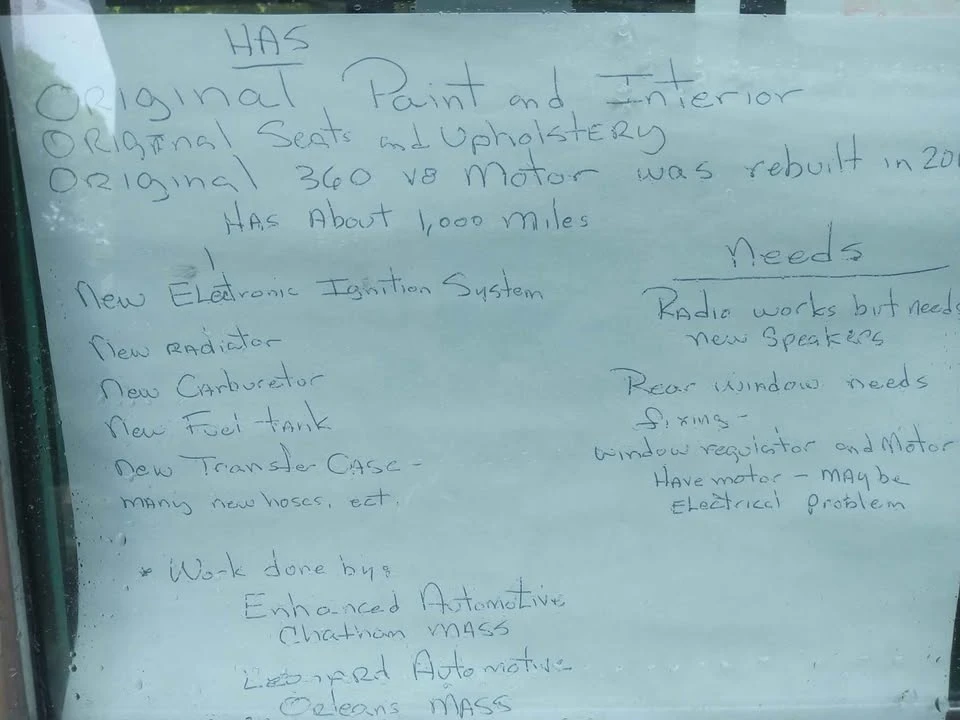 HAS
Original Paint and Interior
Original Seats and Upholstery
Original 360 V8 Motor was rebuilt in 20
HAS About 1,000 miles
New Electronic Ignition System
New Radiator
New Carburetor
New Fuel tank
New Transfer Case -
many new hoses, ect.
Needs
Radio works but needs
new Speakers
Rear window needs
fixing -
window regulator and Motor
Have motor - may be
Electrical problem
* Work done by:
Enhanced Automotive
Chatham MASS
Automotive
Orleans MASS